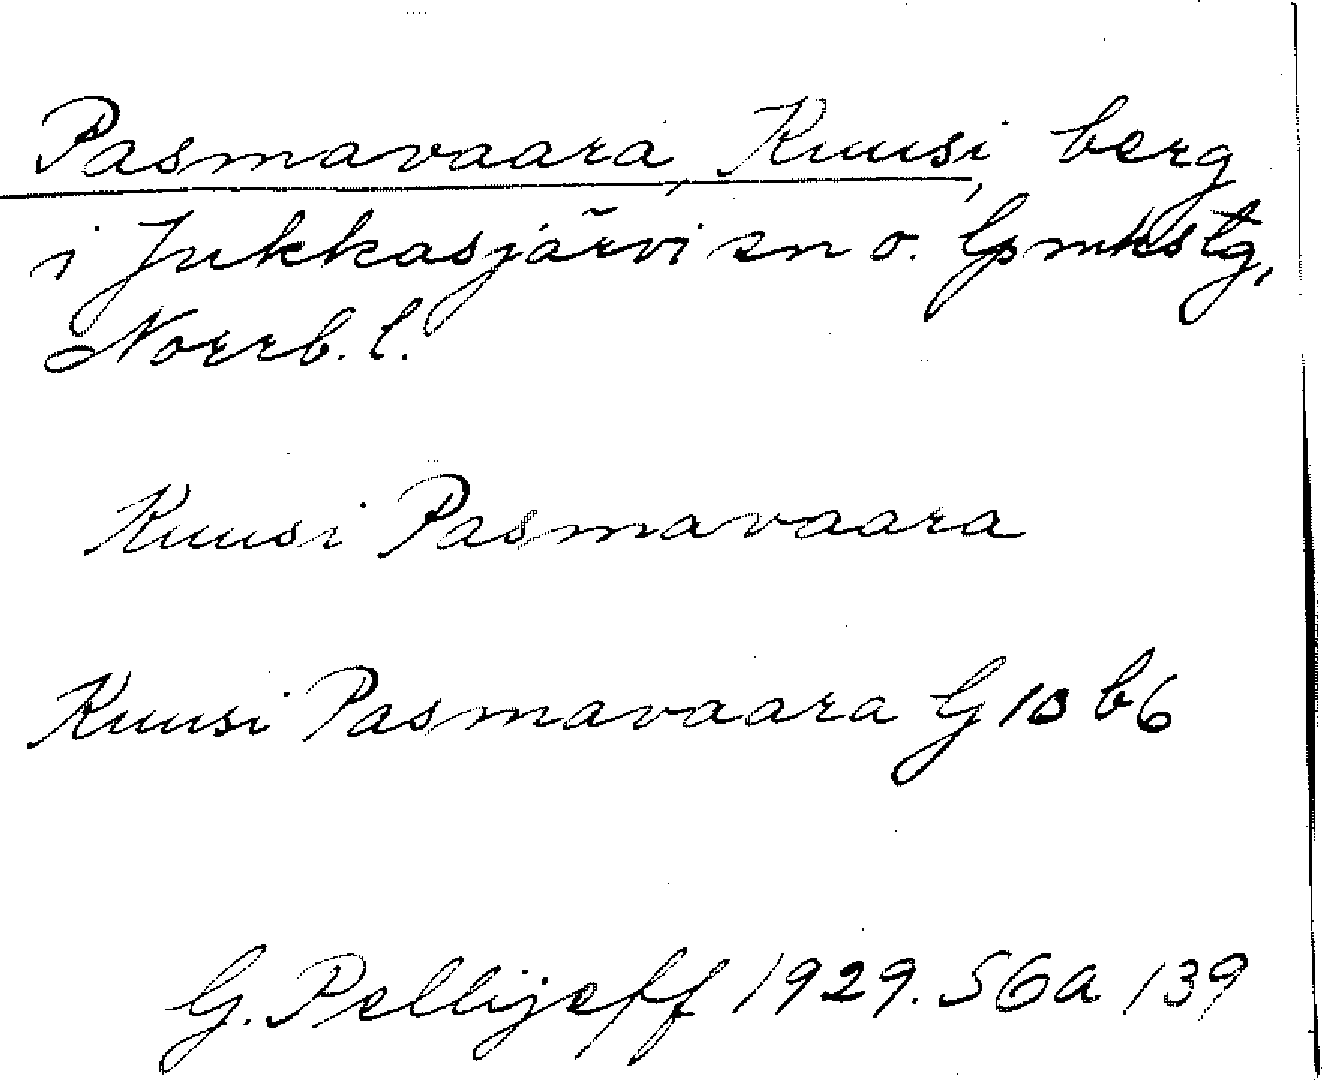 Pasmavaara, Kuusi, berg
i Jukkasjärvi sn o. lpmkstg,
Norrb. l.
Kuusi Pasmavaara
Kuusi Pasmavaara G 10 b6
G. Pellijeff 1929. SGa 139